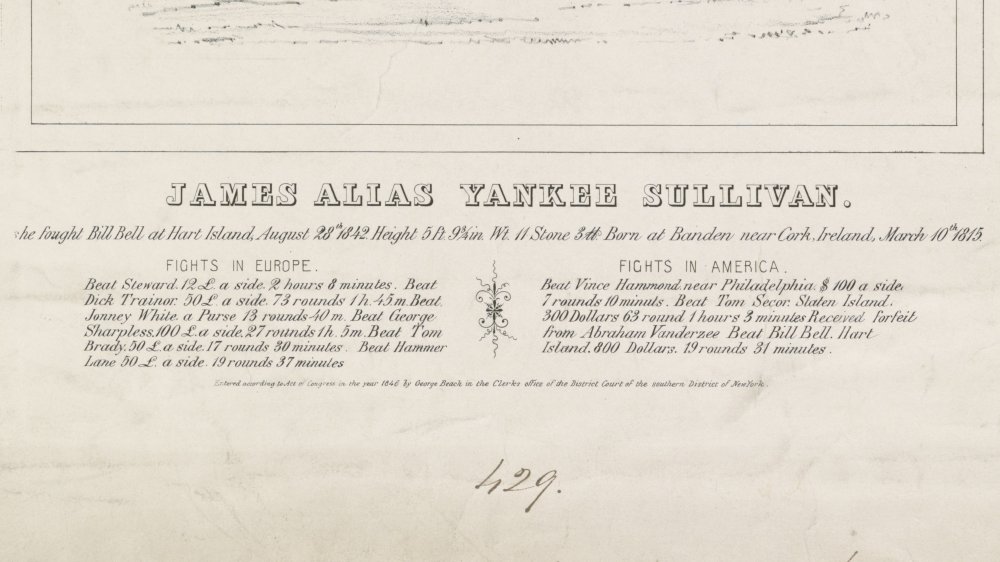 JAMES ALIAS YANKEE SULLIVAN.
he fought Bill Bell at Hart Island, August 28th 1842. Height 5 ft. 9¾ in. Wt. 11 Stone 3 ℔. Born at Banden near Cork, Ireland, March 10th 1815.
FIGHTS IN EUROPE.
Beat Steward. 12 £. a side. 2 hours 8 minutes. Beat
Dick Trainor. 50 £. a side. 73 rounds 1 h. 45 m. Beat.
Jonney White. a Purse 13 rounds 40 m. Beat George
Sharpless. 100 £. a side. 27 rounds 1 h. 5 m. Beat Tom
Brady. 50 £. a side. 17 rounds 30 minutes. Beat Hammer
Lane 50 £. a side. 19 rounds 37 minutes
FIGHTS IN AMERICA.
Beat Vince Hammond. near Philadelphia. $ 100 a side.
7 rounds 10 minuts. Beat Tom Secor. Staten Island.
300 Dollars 63 round 1 hours 3 minutes Received forfeit
from Abraham Vanderzee Beat Bill Bell. Hart
Island. 800 Dollars. 19 rounds 31 minutes.
Entered according to Act of Congress in the year 1846 by George Beach in the Clerks office of the District Court of the southern District of New York.
429.